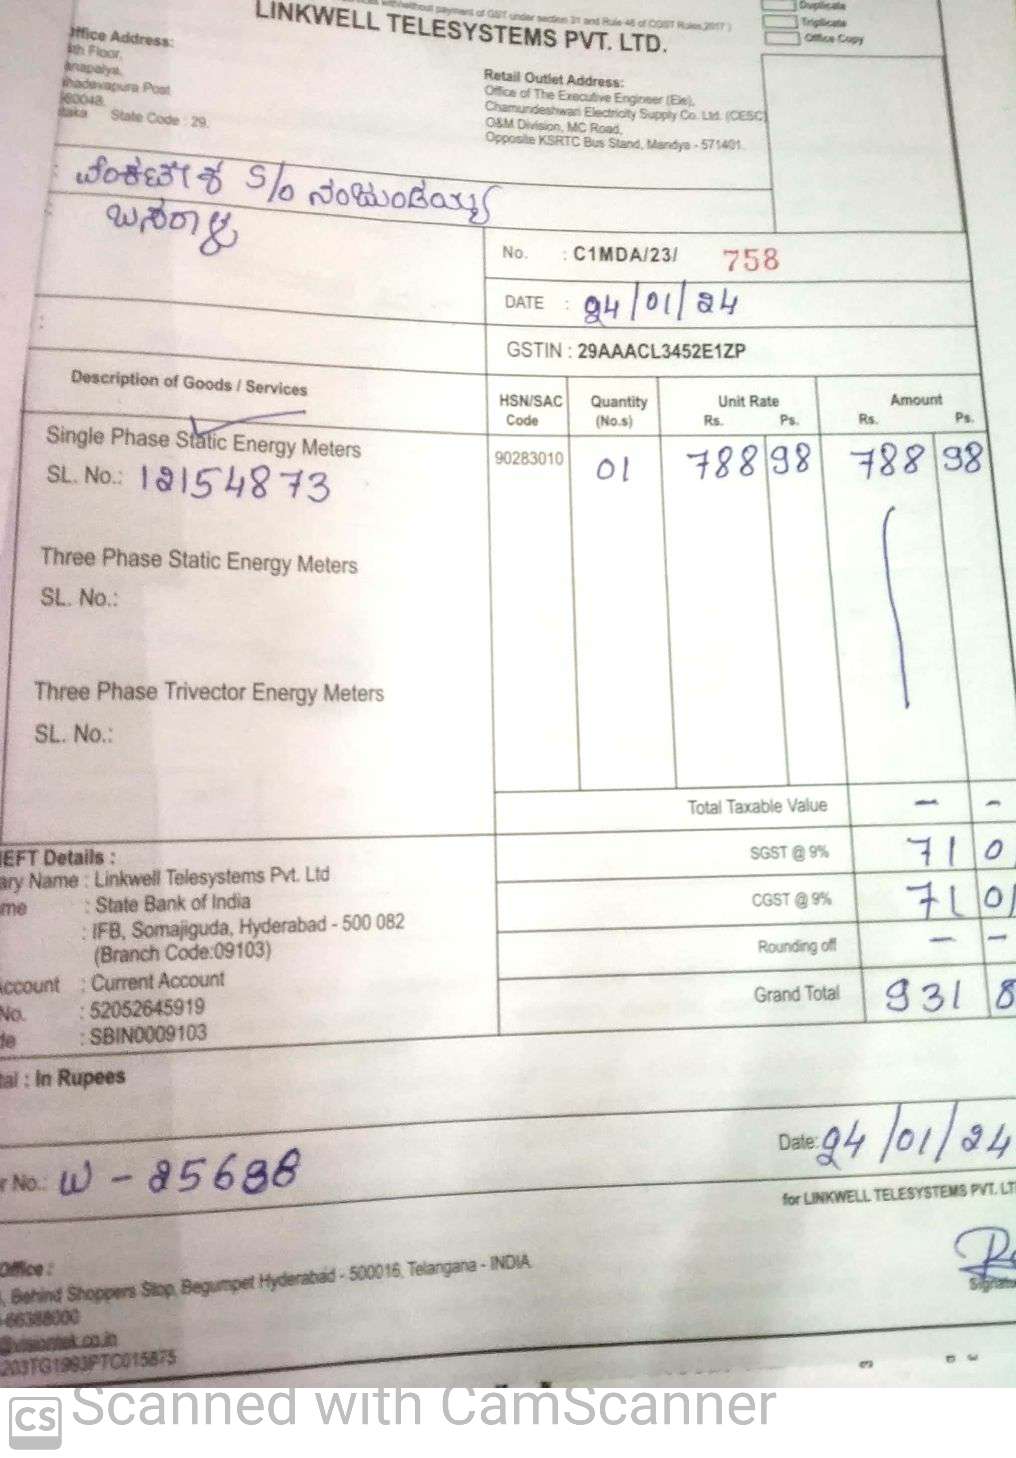 without payment of GST under section 31 and Rule 46 of CGST Rules, 2017 )
LINKWELL TELESYSTEMS PVT. LTD.
Duplicate
Triplicate
Office Copy
Office Address:
Floor,
anapalya,
hadevapura Post
560048.
ataka State Code : 29.
Retail Outlet Address:
Office of The Executive Engineer (Ele),
Chamundeshwari Electricity Supply Co. Ltd. (CESC)
O&M Division, MC Road,
Opposite KSRTC Bus Stand, Mandya - 571401.
ವೆಂಕಟೇಶ S/o ನಂಜುಂಡಯ್ಯ
ಬಸರಾಳು
No. : C1MDA/23/ 758
DATE : 24/01/24
GSTIN : 29AAACL3452E1ZP
Description of Goods / Services
HSN/SAC Code
Quantity (No.s)
Unit Rate Rs. Ps.
Amount Rs. Ps.
Single Phase Static Energy Meters
90283010 01 788 98 788 98
SL. No.: 12154873
Three Phase Static Energy Meters
SL. No.:
Three Phase Trivector Energy Meters
SL. No.:
Total Taxable Value - -
SGST @ 9% 71 0
CGST @ 9% 71 01
Rounding off - -
Grand Total 931 8
EFT Details :
ary Name : Linkwell Telesystems Pvt. Ltd
me : State Bank of India
: IFB, Somajiguda, Hyderabad - 500 082
(Branch Code:09103)
Account : Current Account
No. : 52052645919
de : SBIN0009103
tal : In Rupees
r No.: W - 25638
Date: 24/01/24
for LINKWELL TELESYSTEMS PVT. LT
Signatu
Office :
, Behind Shoppers Stop, Begumpet Hyderabad - 500016, Telangana - INDIA
-66388000
@visiontek.co.in
203TG1993PTC015875
CS Scanned with CamScanner